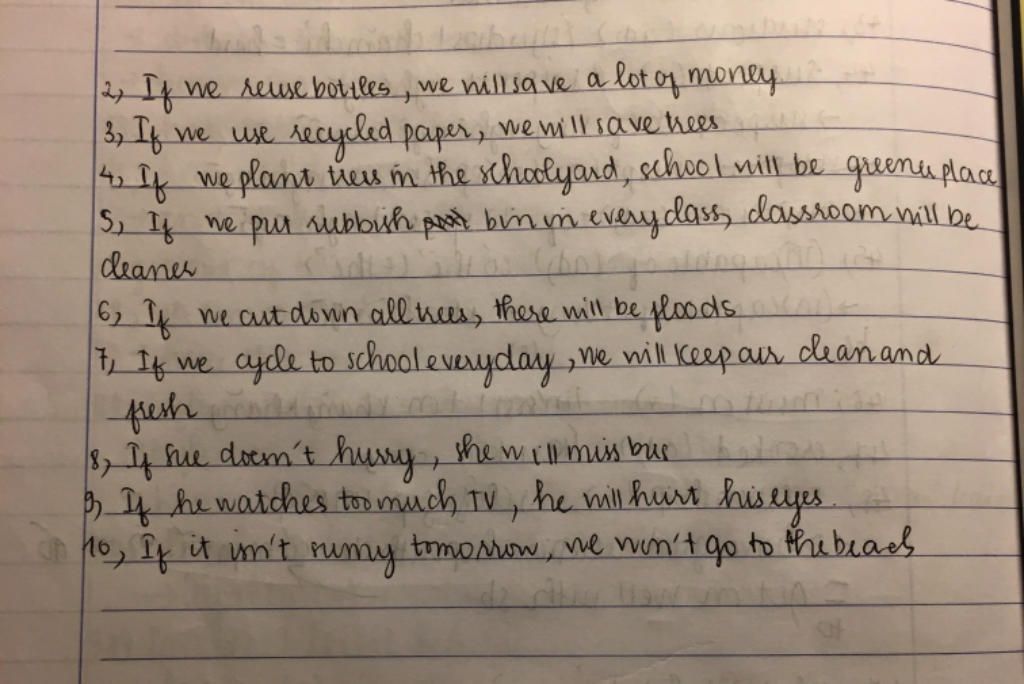 2, If we reuse bottles, we will save a lot of money
3, If we use recycled paper, we will save trees
4, If we plant trees in the schoolyard, school will be greener place
5, If we put rubbish bin in every class, classroom will be
cleaner
6, If we cut down all trees, there will be floods
7, If we cycle to school everyday, we will keep air clean and
fresh
8, If Sue doesn't hurry, she will miss bus
9, If he watches too much TV, he will hurt his eyes.
10, If it isn't sunny tomorrow, we won't go to the beach